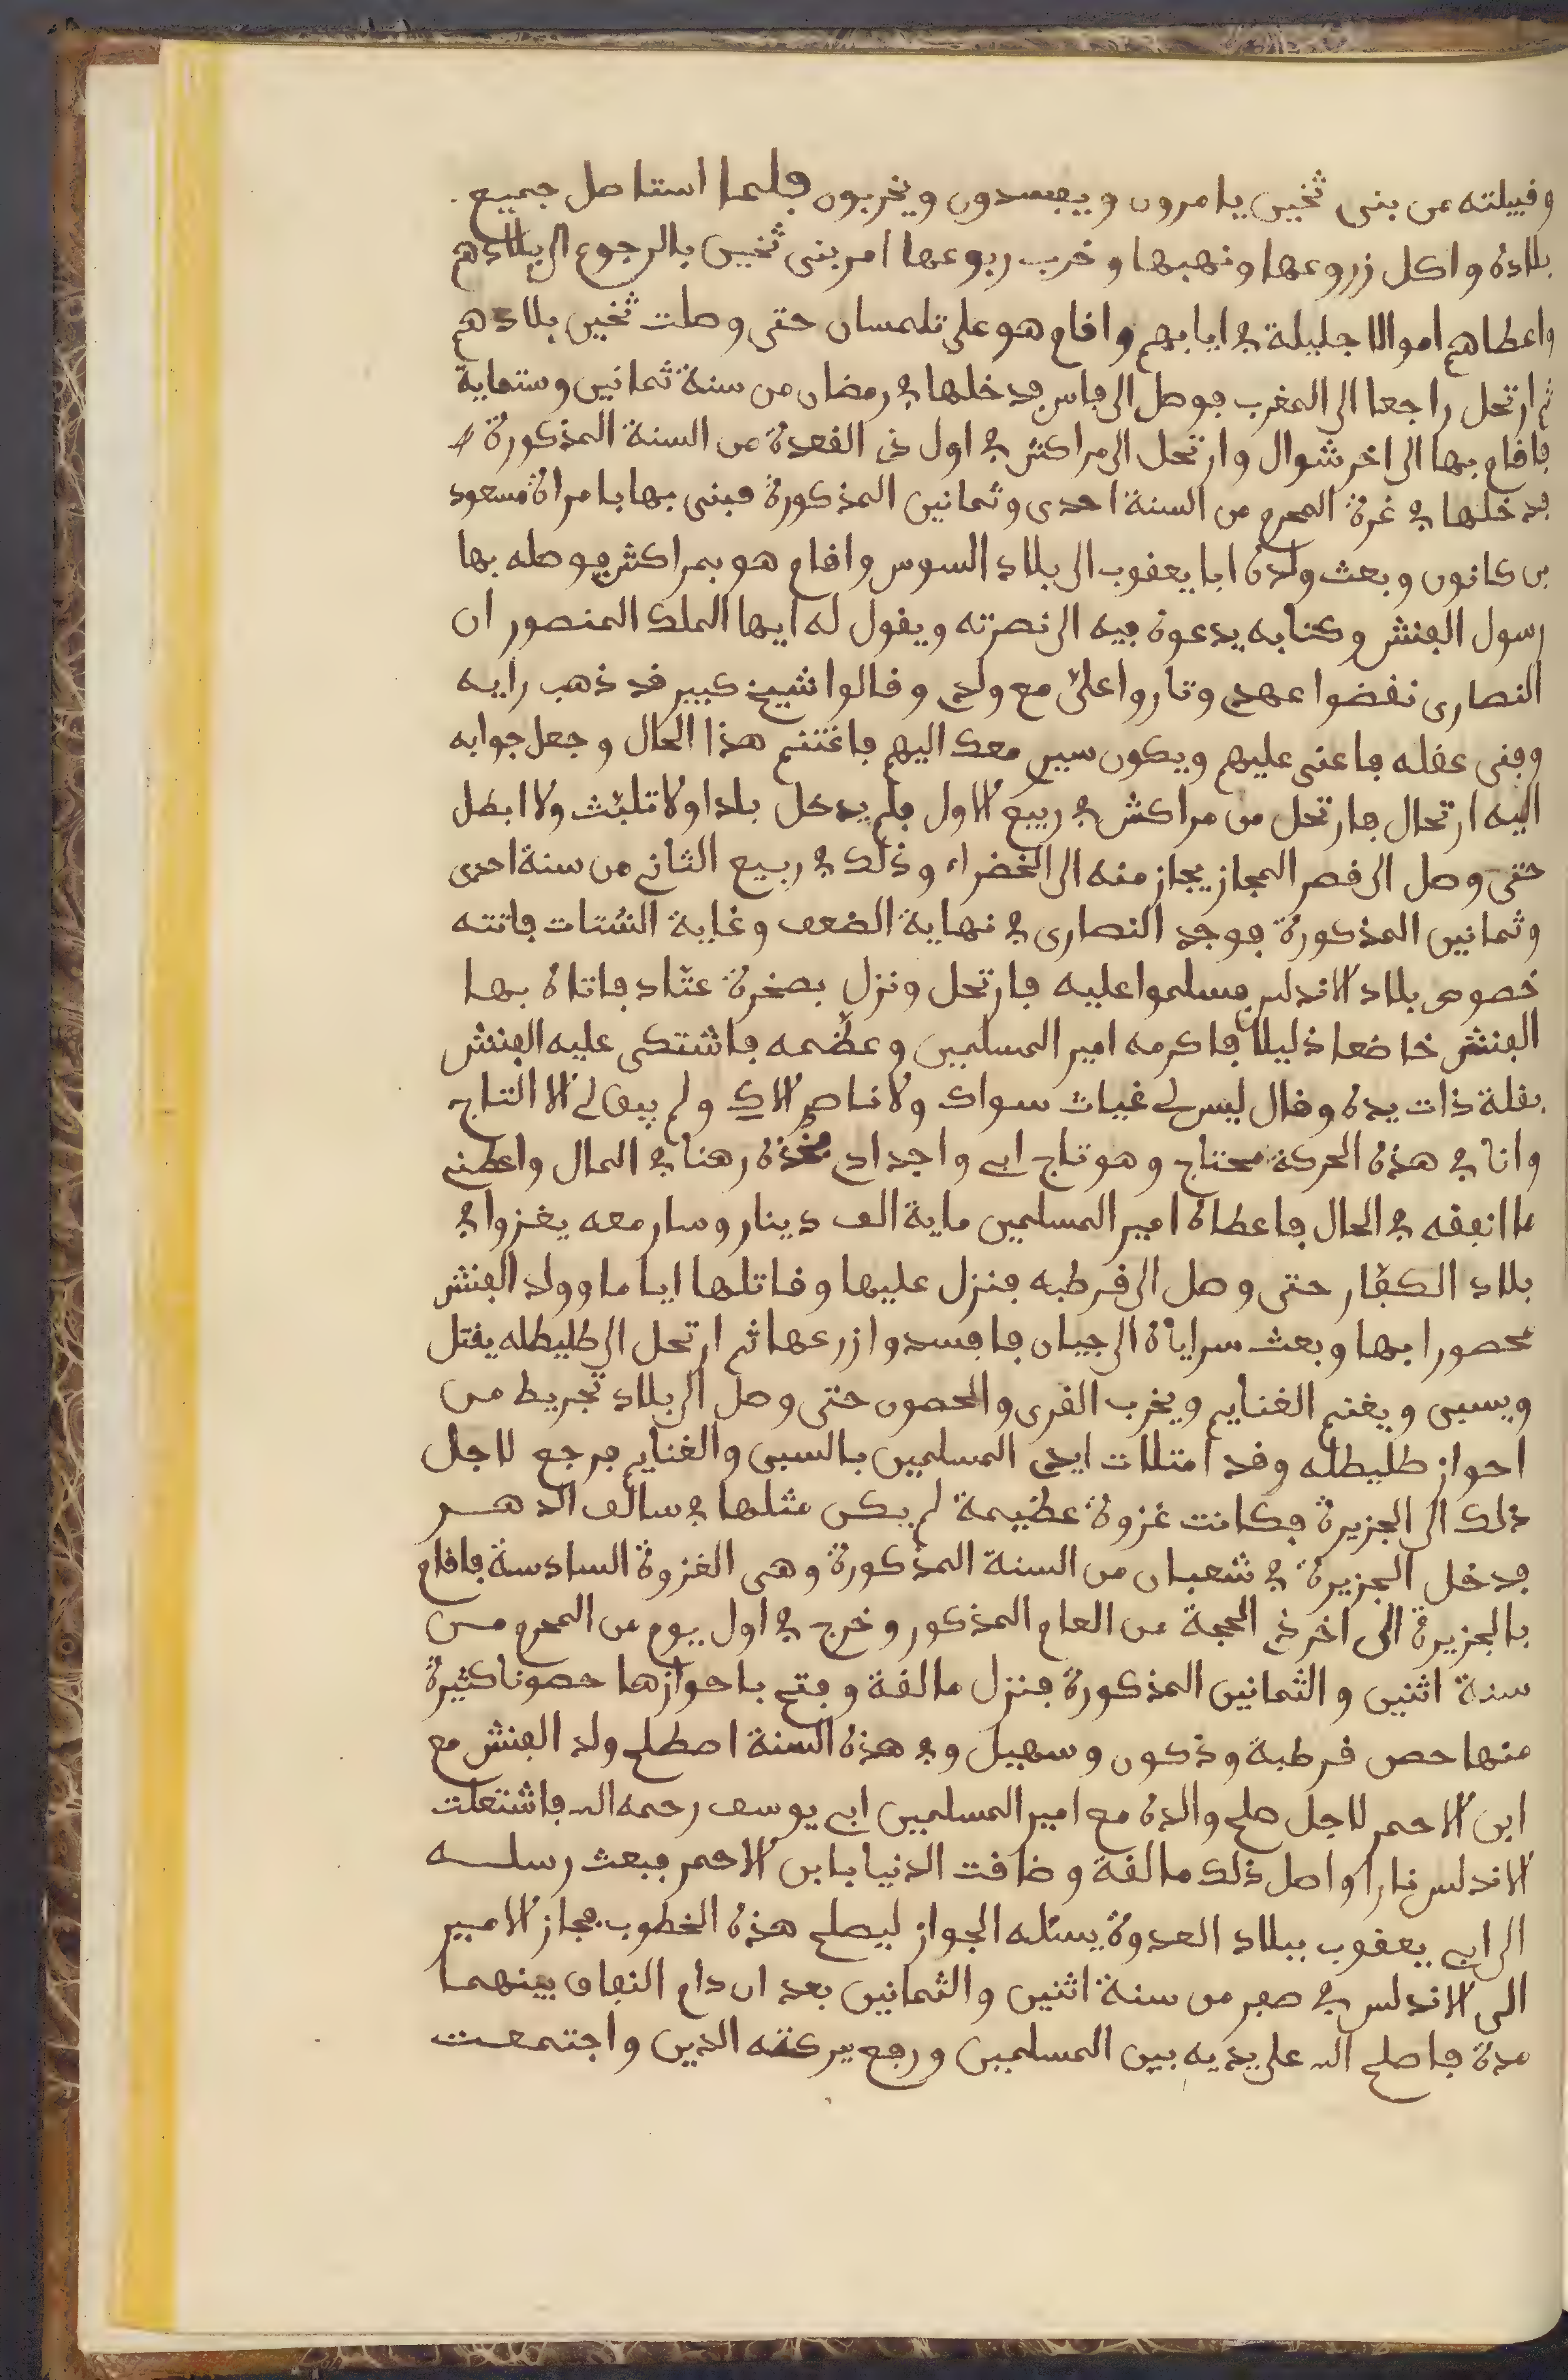 وقبيلته من بنى تجين يامرون ويفسدون ويخربون فلما استاصل جميع
بلاده واكل زروعها ونهبها وخرب ربوعها امر بنى تجين بالرجوع الى بلادهم
واعطاهم اموالا جليلة في ايابهم واقام هو على تلمسان حتى وصلت تجين بلادهم
ثم ارتحل راجعا الى المغرب فوصل الى فاس فدخلها في رمضان من سنة ثمانين وستماية
فاقام بها الى اخر شوال وارتحل الى مراكش في اول ذى القعدة من السنة المذكورة
فدخلها في غرة المحرم من السنة احدى وثمانين المذكورة فبنى بها بامراة مسعود
بن كانون وبعث ولده ابا يعقوب الى بلاد السوس واقام هو بمراكش فوصله بها
رسول الفنش وكتابه يدعوه فيه الى نصرته ويقول له ايها الملك المنصور ان
النصارى نقضوا عهدي وثاروا علىّ مع ولدي وقالوا شيخ كبير قد ذهب رايه
وفنى عقله فاعنى عليهم ويكون سيري معك اليهم فاغتنم هذا الحال وجعل جوابه
اليه ارتحال فارتحل من مراكش في ربيع الاول فلم يدخل بلدا ولا تلبّث ولا ابطل
حتى وصل الى قصر المجاز يجاز منه الى الخضراء وذلك في ربيع الثاني من سنة احدى
وثمانين المذكورة فوجد النصارى في نهاية الضعف وغاية الشتات فاتته
خصوص بلاد الاندلس فسلموا عليه فارتحل ونزل بصخرة عبّاد فاتاه بها
الفنش خاضعا ذليلا فاكرمه امير المسلمين وعظّمه فاشتكى عليه الفنش
بقلة ذات يده وقال ليس لي غياث سواك ولا ناصر الاك ولم يبق لي الا التاج
وانا في هذه الحركة محتاج وهو تاج ابي واجدادي فخذه رهنا في المال واعطني
ما انفقه في الحال فاعطاه امير المسلمين ماية الف دينار وسار معه يغزوا في
بلاد الكفّار حتى وصل الى قرطبه فنزل عليها وقاتلها اياما وولد الفنش
محصورا بها وبعث سراياه الى جيان فافسدوا زرعها ثم ارتحل الى طليطله يقتل
ويسبى ويغنم الغنايم ويخرب القرى والحصون حتى وصل الى بلاد تجريط من
احواز طليطله وقد امتلات ايدي المسلمين بالسبى والغنايم فرجع لاجل
ذلك الى الجزيرة فكانت غزوة عظيمة لم يكن مثلها في سالف الدهر
فدخل الجزيرة في شعبان من السنة المذكورة وهى الغزوة السادسة فاقام
بالجزيرة الى اخر ذي الحجة من العام المذكور وخرج في اول يوم من المحرم من
سنة اثنين والثمانين المذكورة فنزل مالقة وفتح باحوازها حصونا كثيرة
منها حصن قرطبة وذكون وسهيل وفي هذه السنة اصطلح ولد الفنش مع
ابن الاحمر لاجل صلح والده مع امير المسلمين ابي يوسف رحمه الله فاشتعلت
الاندلس نارا واصل ذلك مالقة وضاقت الدنيا بابن الاحمر فبعث رسله
الى ابي يعقوب ببلاد العدوة يسئله الجواز ليصلح هذه الخطوب فجاز الامير
الى الاندلس في صفر من سنة اثنين والثمانين بعد ان دام النفاق بينهما
مدة فاصلح الله على يديه بين المسلمين ورفع ببركته الدين واجتمعت